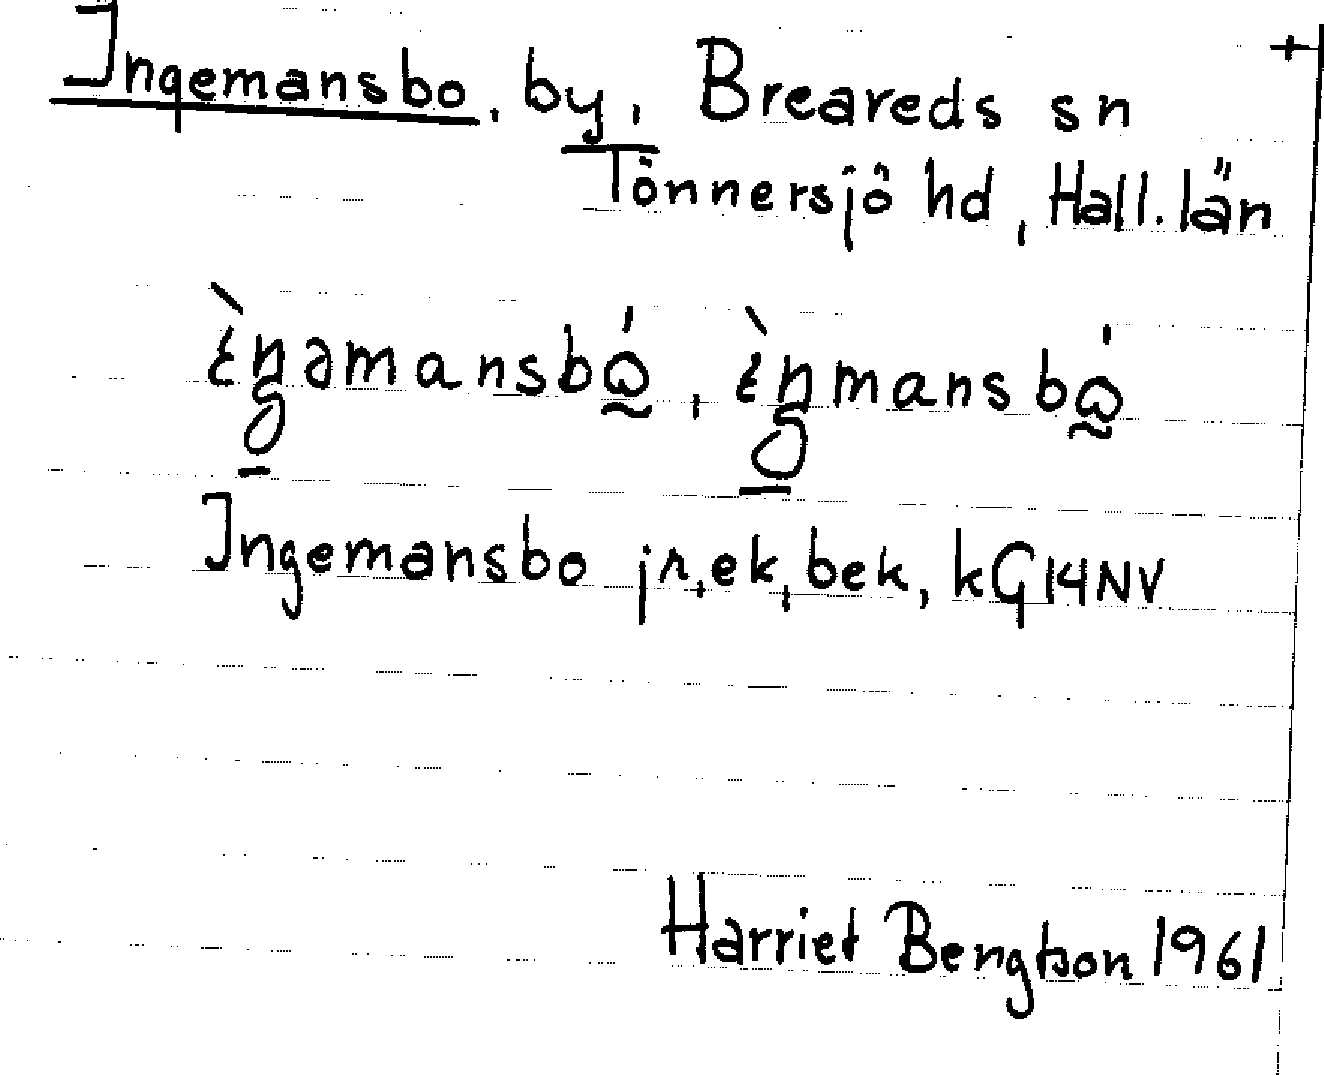 Ingemansbo, by, Breareds sn +
Tönnersjö hd, Hall. län
Ingemansbo jr, ek, bek, kG14NV
Harriet Bengtson 1961